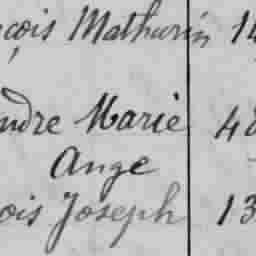 çois Mathurin 14
ndre Marie 48
Ange
ois Joseph 13